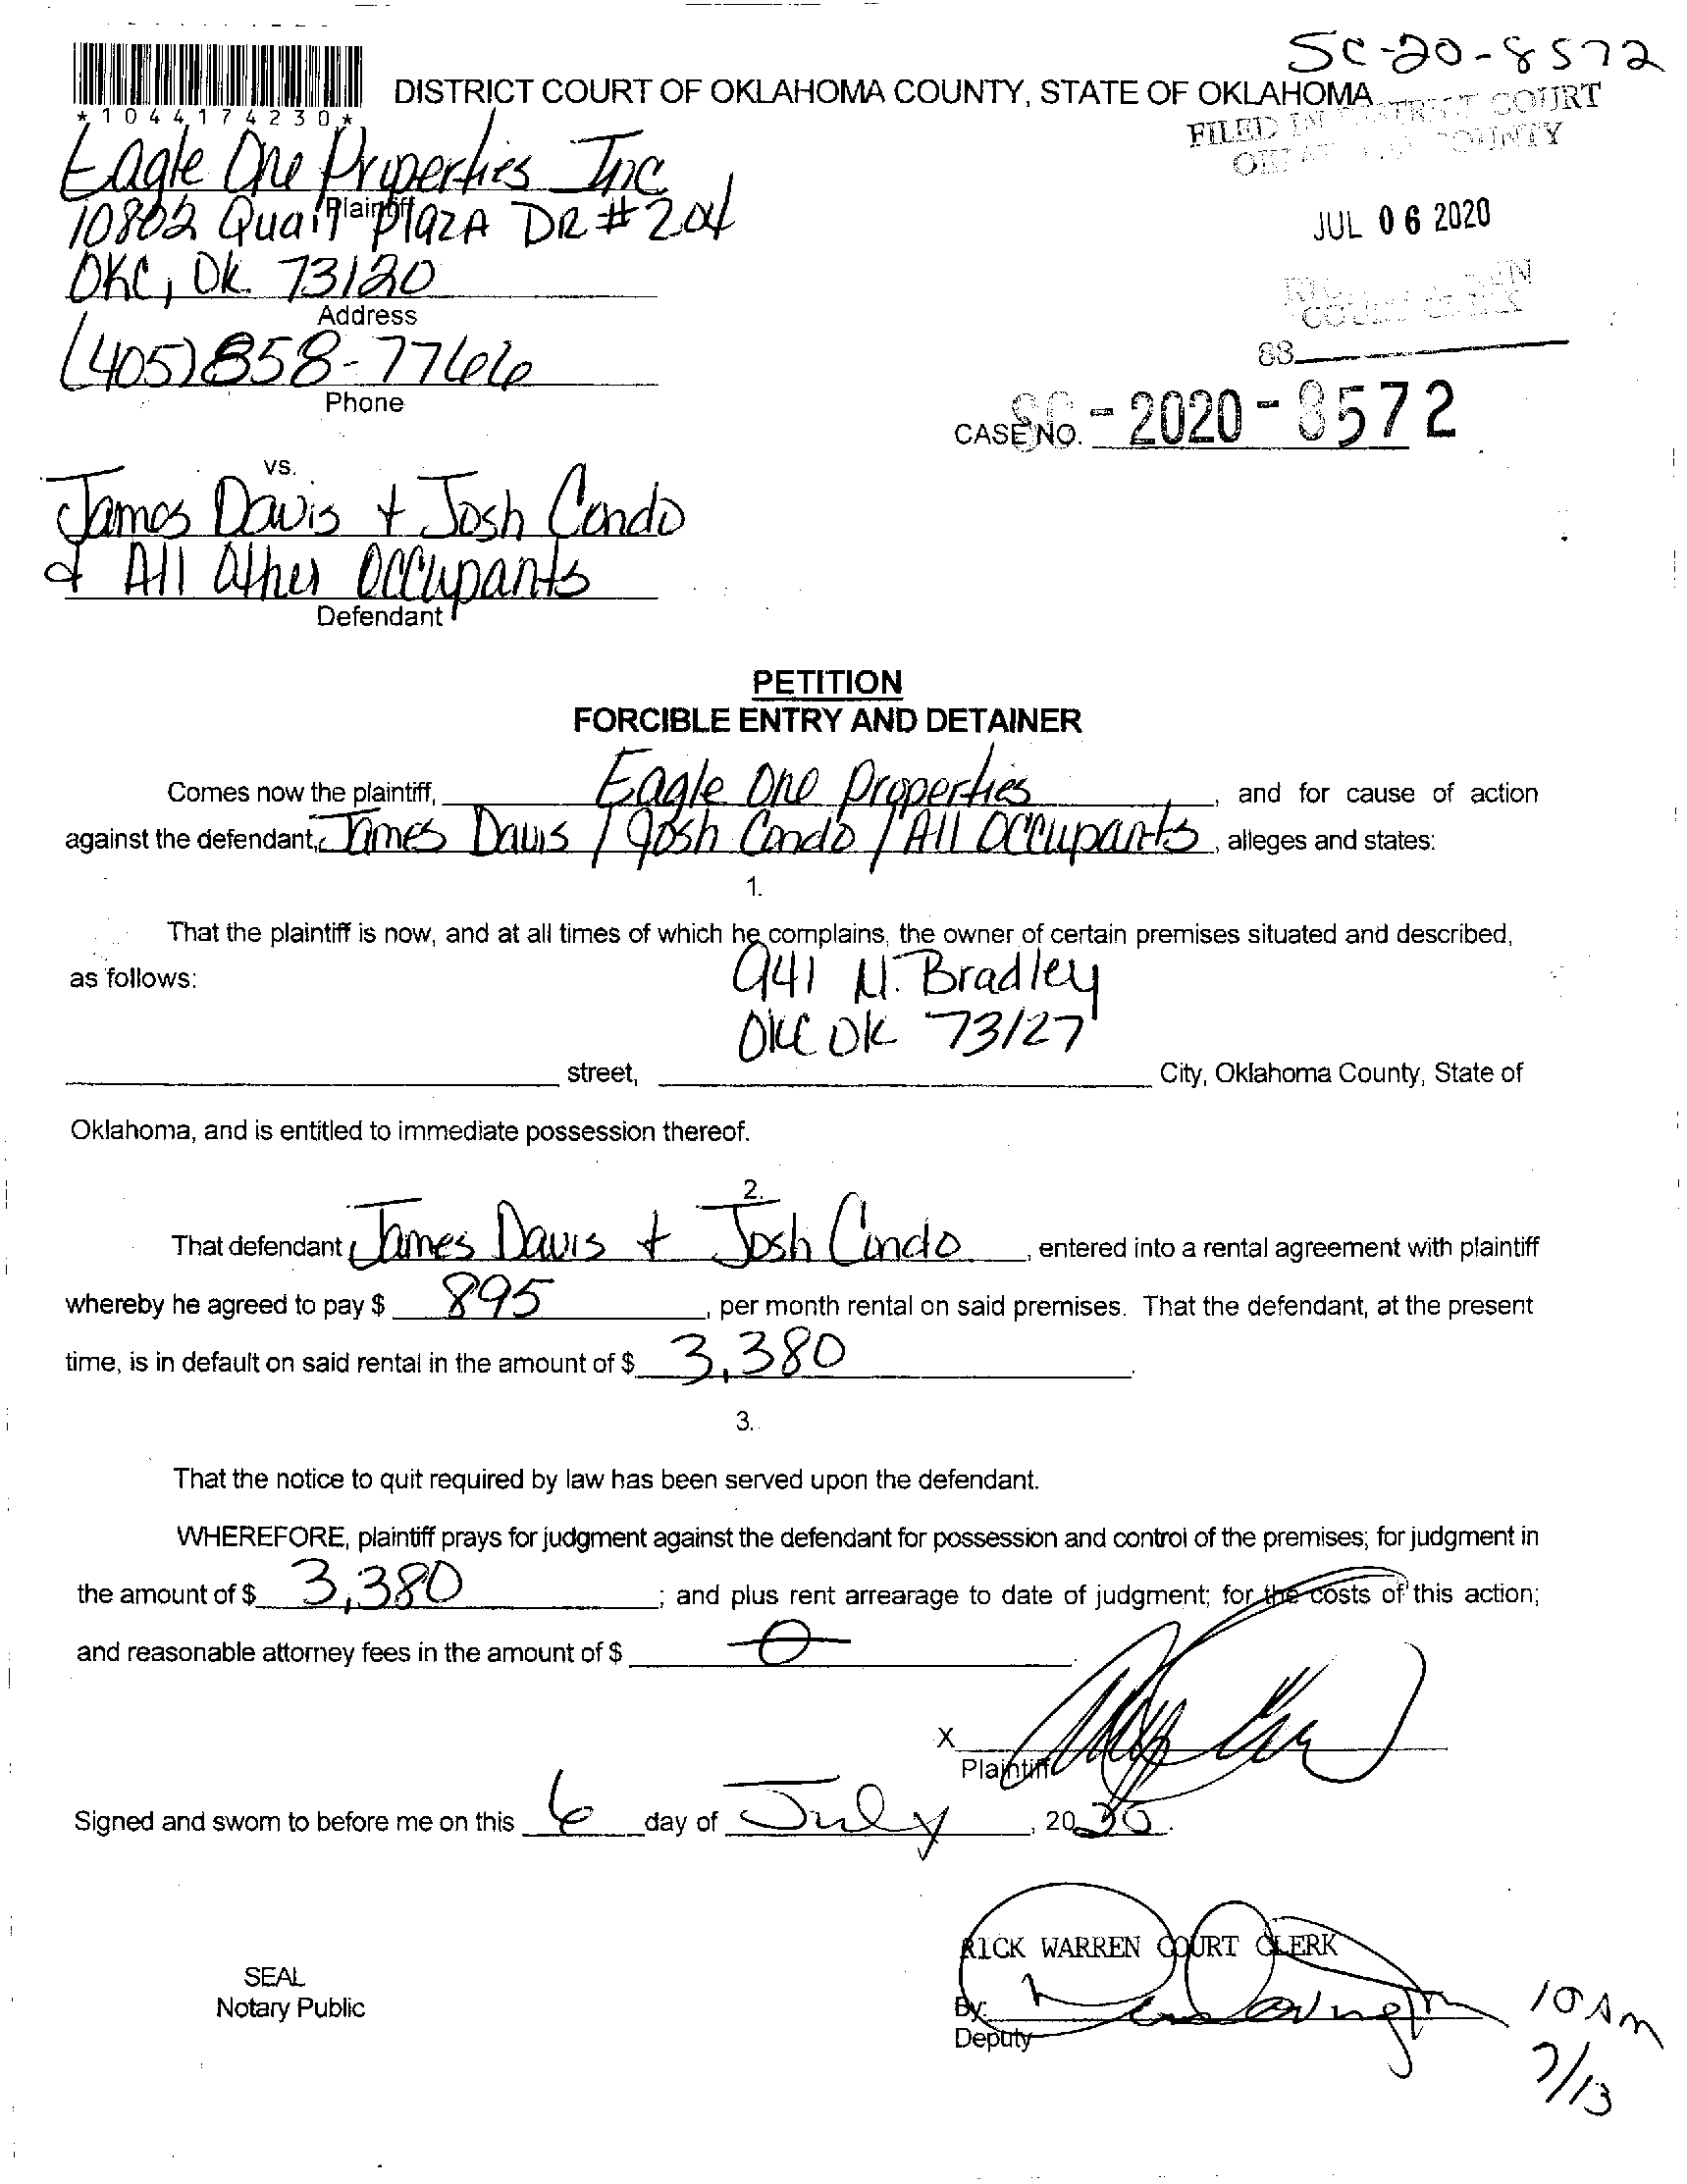 SC-20-8572
DISTRICT COURT OF OKLAHOMA COUNTY, STATE OF OKLAHOMA
*1044174230*
FILED IN DISTRICT COURT
COUNTY
Eagle One Properties Inc
Plaintiff
10802 Quail Plaza DR #204
OKC, OK 73120
Address
JUL 06 2020
COURT CLERK
88
(405) 858-7766
Phone
CASE NO. SC-2020-8572
vs.
James Davis + Josh Condo
& All Other Occupants
Defendant
PETITION
FORCIBLE ENTRY AND DETAINER
Comes now the plaintiff, Eagle One Properties, and for cause of action
against the defendant, James Davis / Josh Condo / All Occupants, alleges and states:
1.
That the plaintiff is now, and at all times of which he complains, the owner of certain premises situated and described,
as follows: 941 N. Bradley
OKC OK 73127
street, City, Oklahoma County, State of
Oklahoma, and is entitled to immediate possession thereof.
2.
That defendant, James Davis + Josh Condo, entered into a rental agreement with plaintiff
whereby he agreed to pay $ 895, per month rental on said premises. That the defendant, at the present
time, is in default on said rental in the amount of $ 3,380.
3.
That the notice to quit required by law has been served upon the defendant.
WHEREFORE, plaintiff prays for judgment against the defendant for possession and control of the premises; for judgment in
the amount of $ 3,380; and plus rent arrearage to date of judgment; for the costs of this action;
and reasonable attorney fees in the amount of $ 0.
X
Plaintiff
Signed and sworn to before me on this 6 day of July, 2020.
RICK WARREN COURT CLERK
SEAL
Notary Public
By:
Deputy
10 AM
7/13